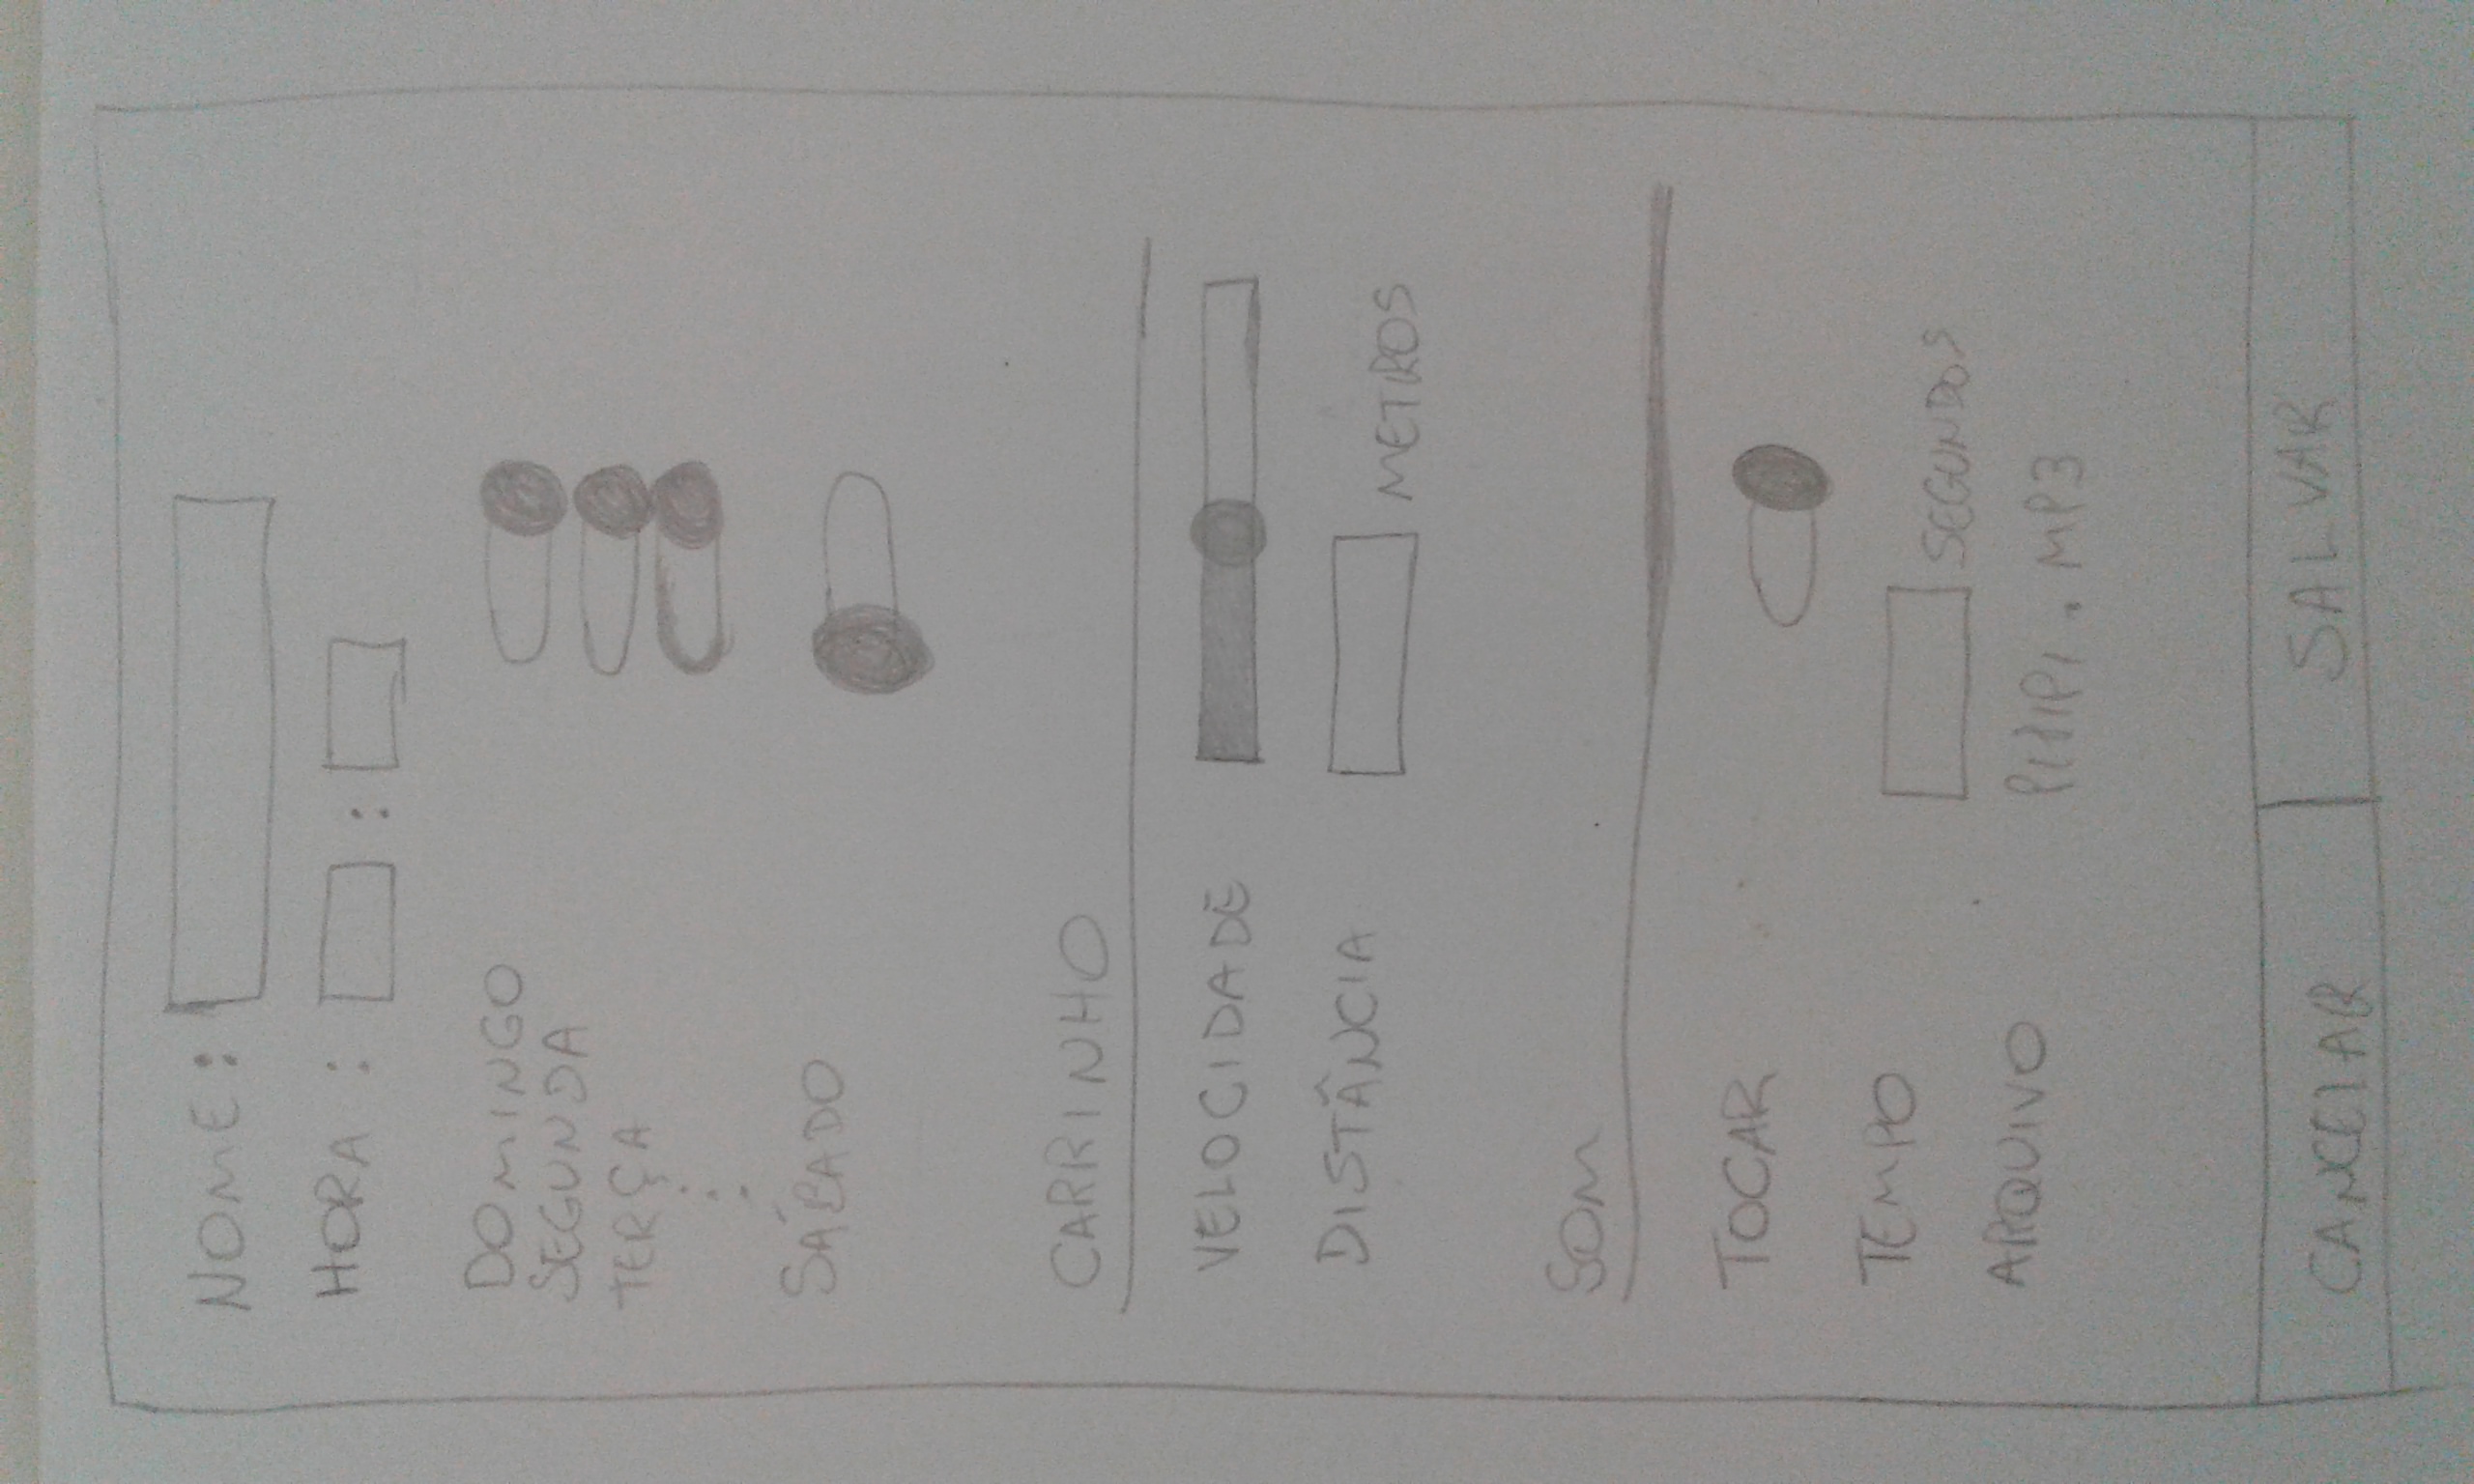 NOME:
HORA : :
DOMINGO
SEGUNDA
TERÇA
SÁBADO
CARRINHO
VELOCIDADE
DISTÂNCIA METROS
SOM
TOCAR
TEMPO SEGUNDOS
ARQUIVO PIPIPI.MP3
CANCELAR SALVAR